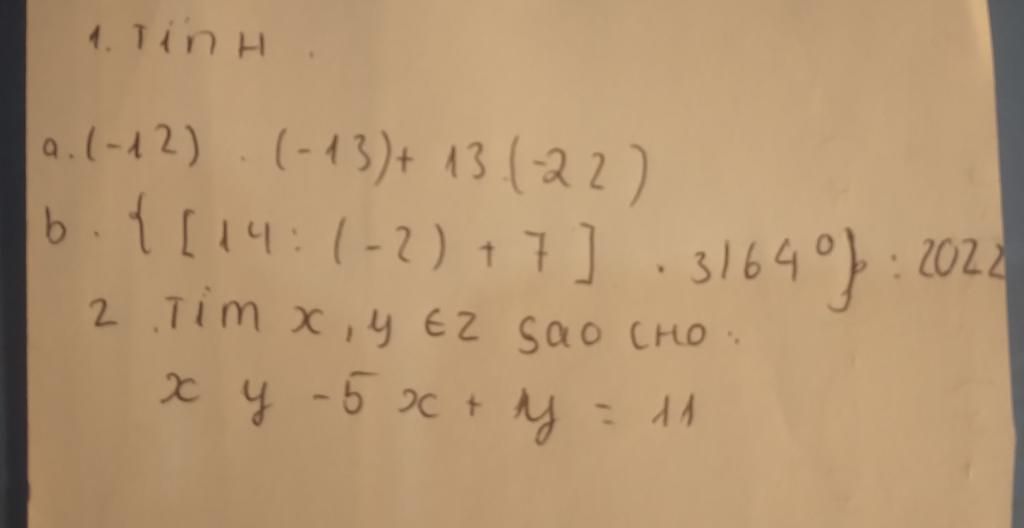 1. TíNH.
a. (-12) . (-13) + 13.(-22)
b. { [14 : (-2) + 7] . 3164⁰} : 2022
2. Tìm x, y ∈ Z sao cho:
xy - 5x + y = 11